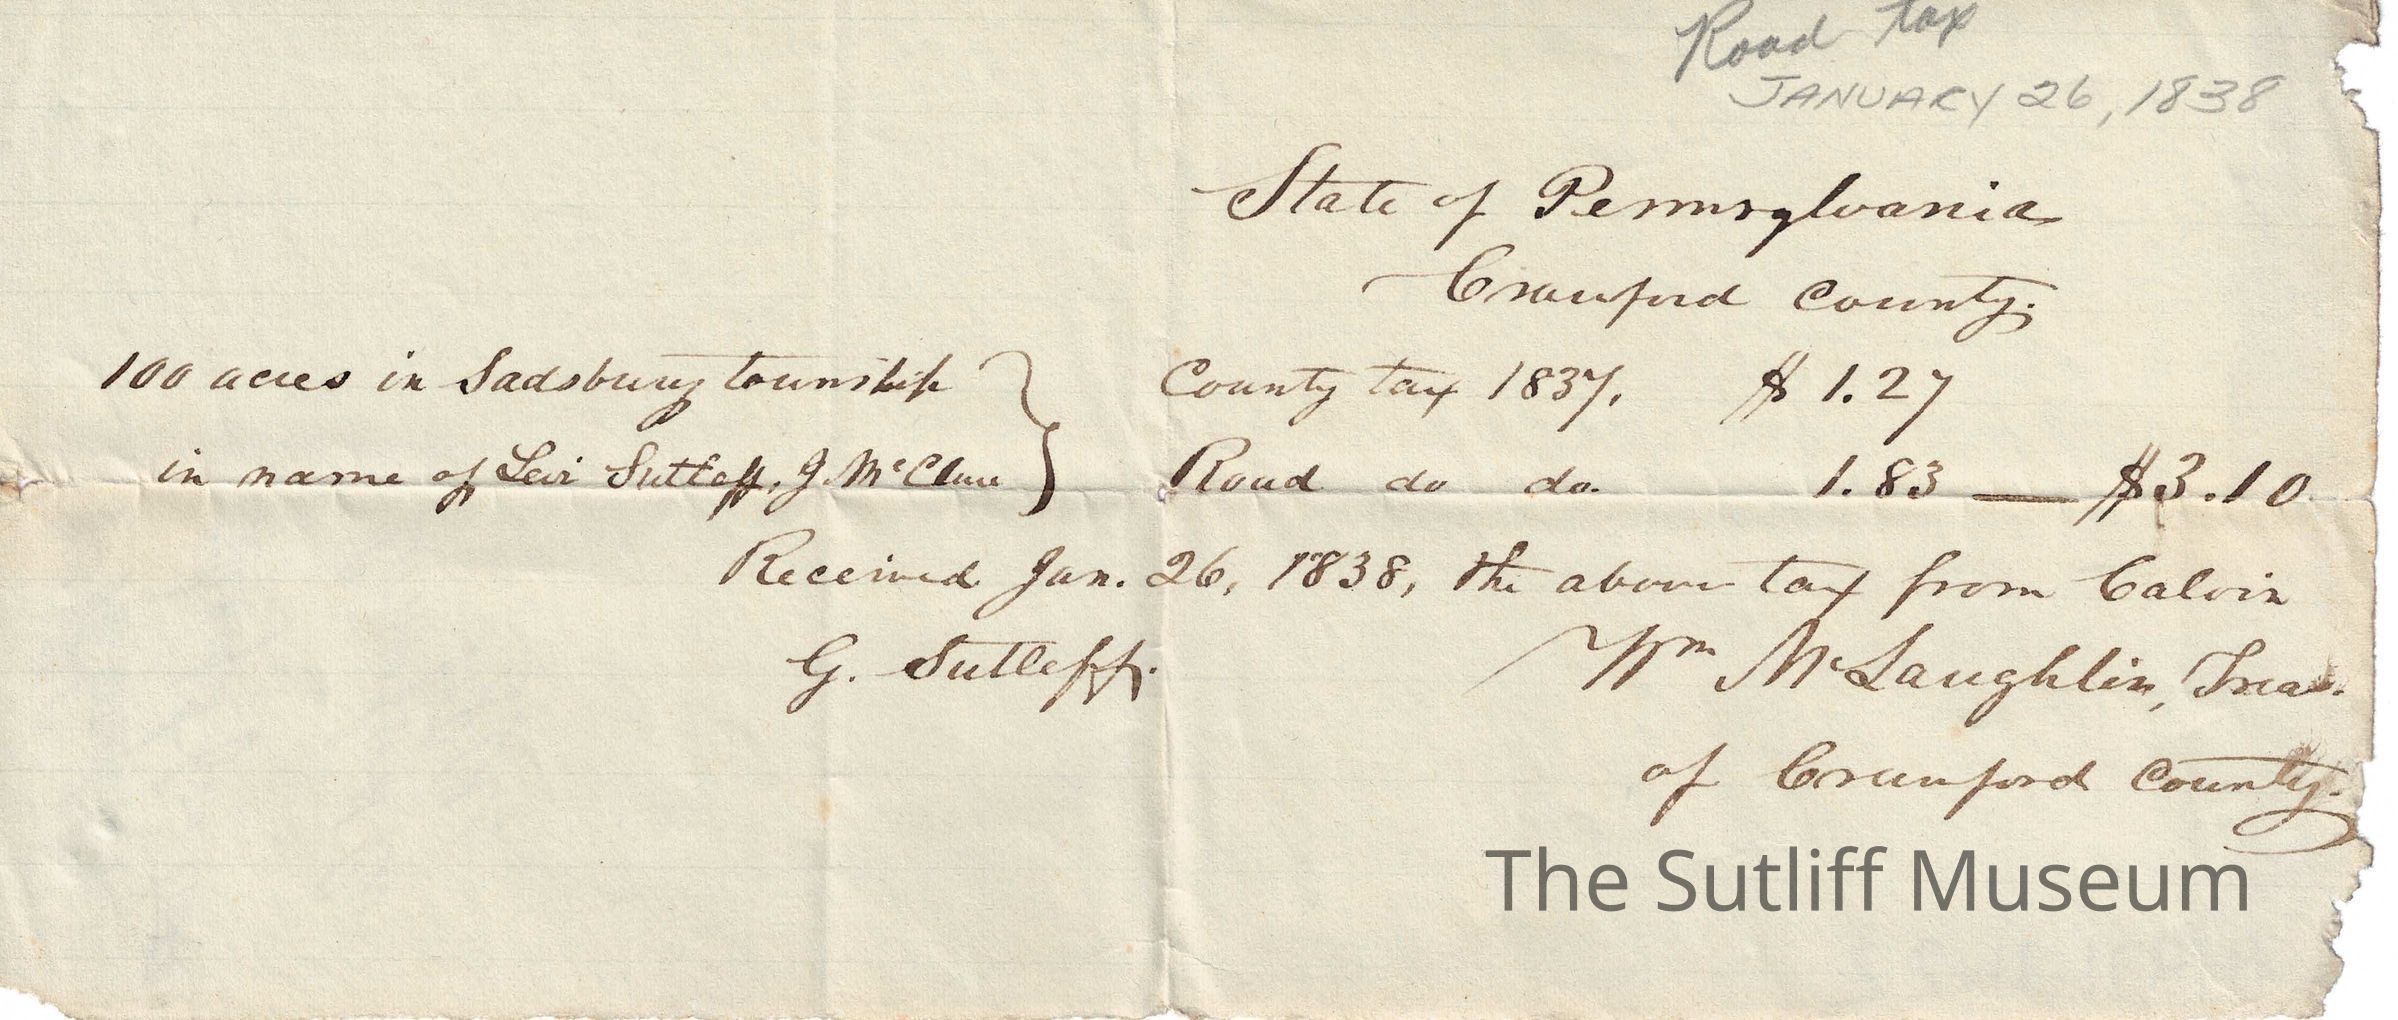 Road tax
JANUARY 26, 1838
State of Pennsylvania
Crawford County.
100 acres in Sadsbury township } County tax 1837. $ 1.27
in name of Levi Sutleff. J. McClure } Road do do. 1.83 — $3.10
Received Jan. 26, 1838, the above tax from Calvin
G. Sutleff. Wm McLaughlin, Trea.
of Crawford County.
The Sutliff Museum